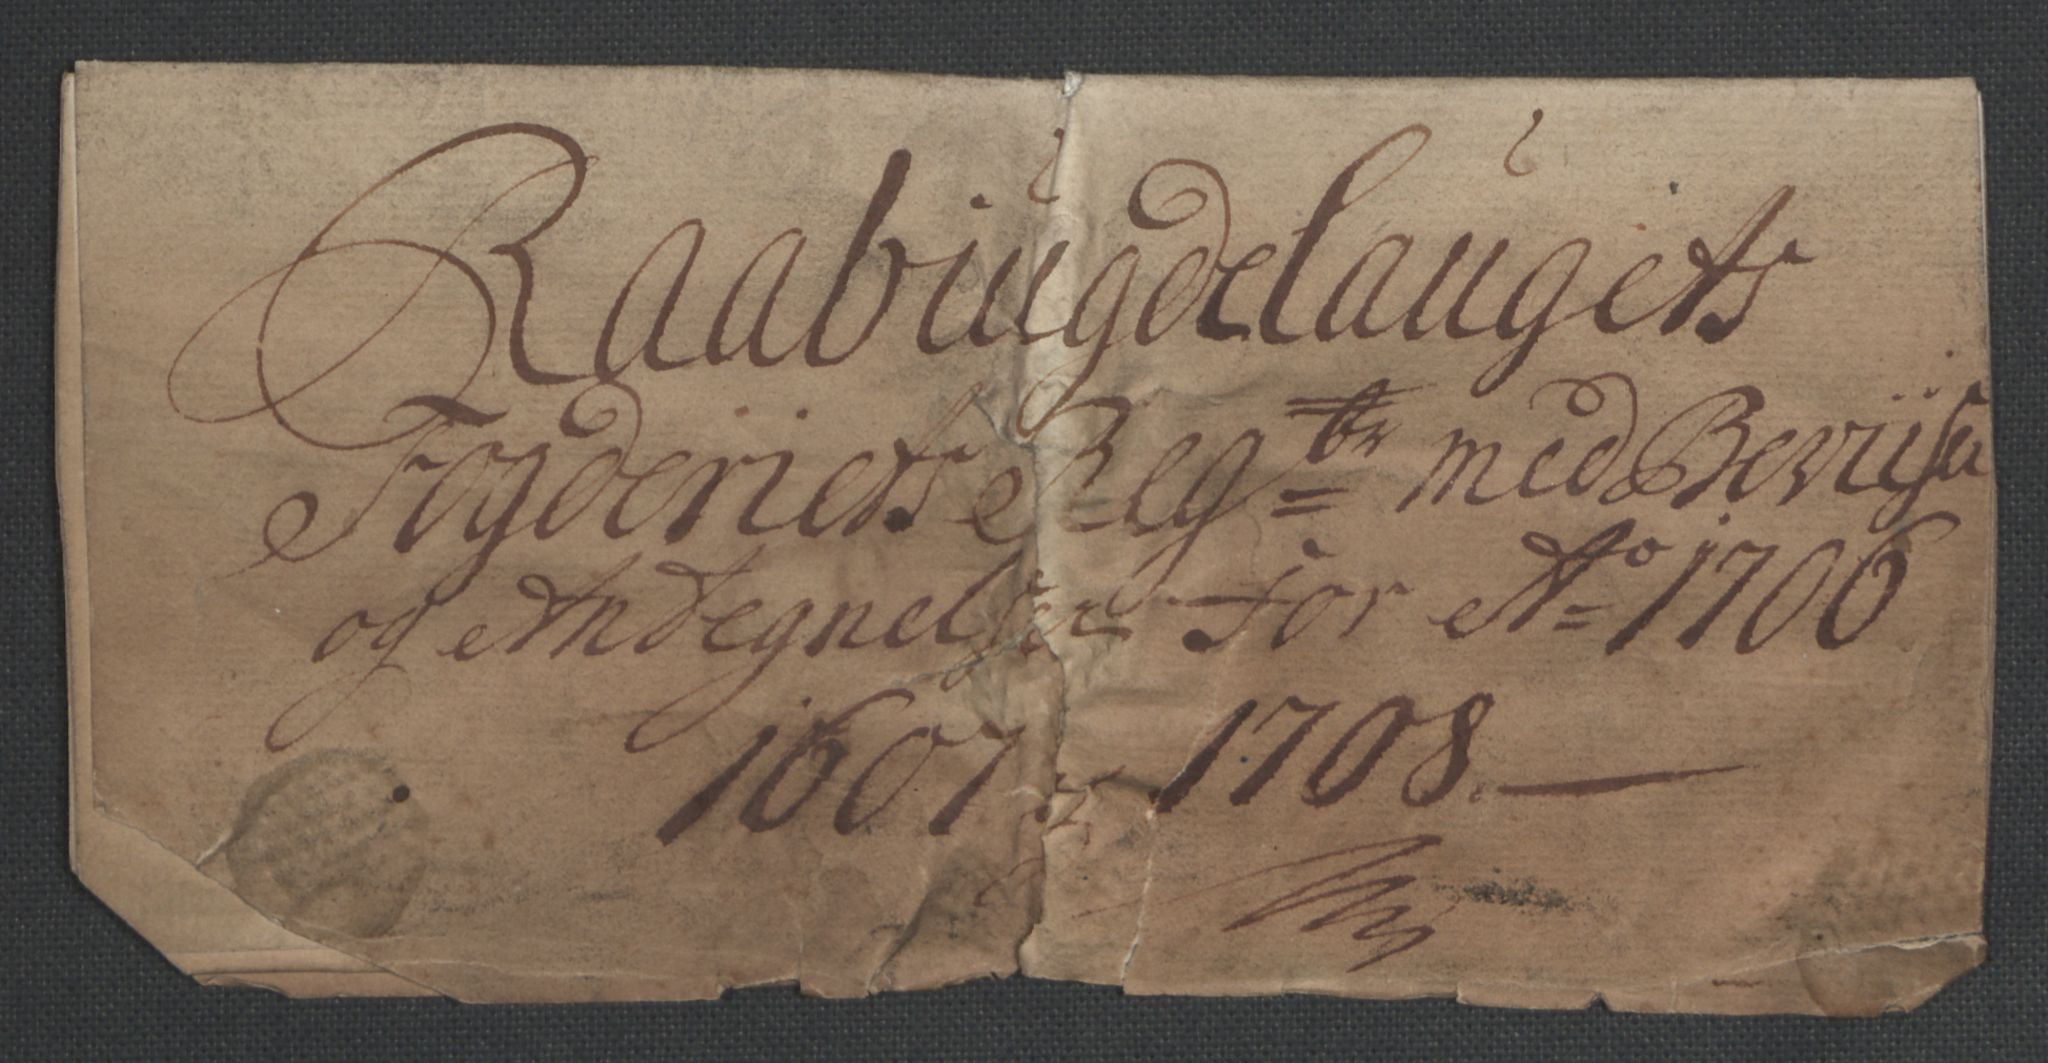 Raabÿugdelaugets
Fogderiets Regbr med Beviiser
og Antegnelser for Ao 1706
1607 og 1708.